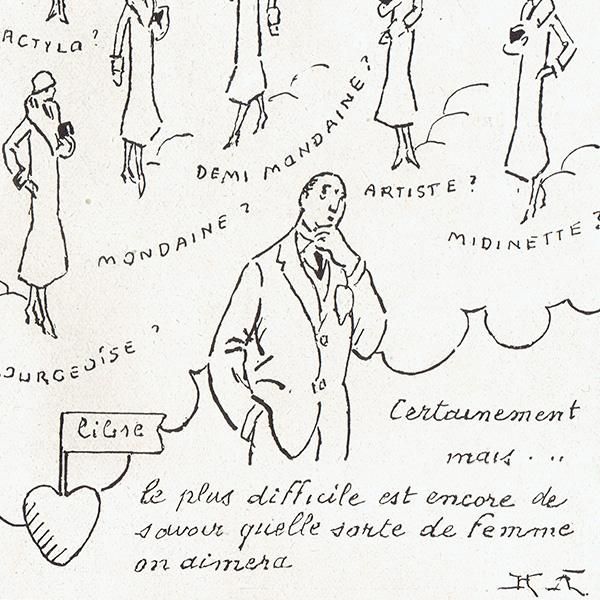 ACTYLO?
DEMI MONDAINE?
ARTISTE?
MIDINETTE?
MONDAINE?
OURGEOISE?
libre
Certainement
mais...
le plus difficile est encore de
savoir quelle sorte de femme
on aimera